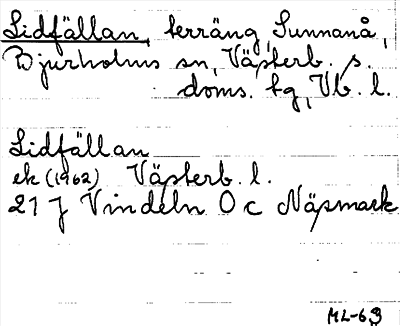 Lidfällan, terräng, Sunnanå,
Bjurholms sn, Västerb. s.
doms. tg, Vb. l.
Lidfällan
ek (1962) Västerb. l.
21 J Vindeln O c Näsmark
ML-63